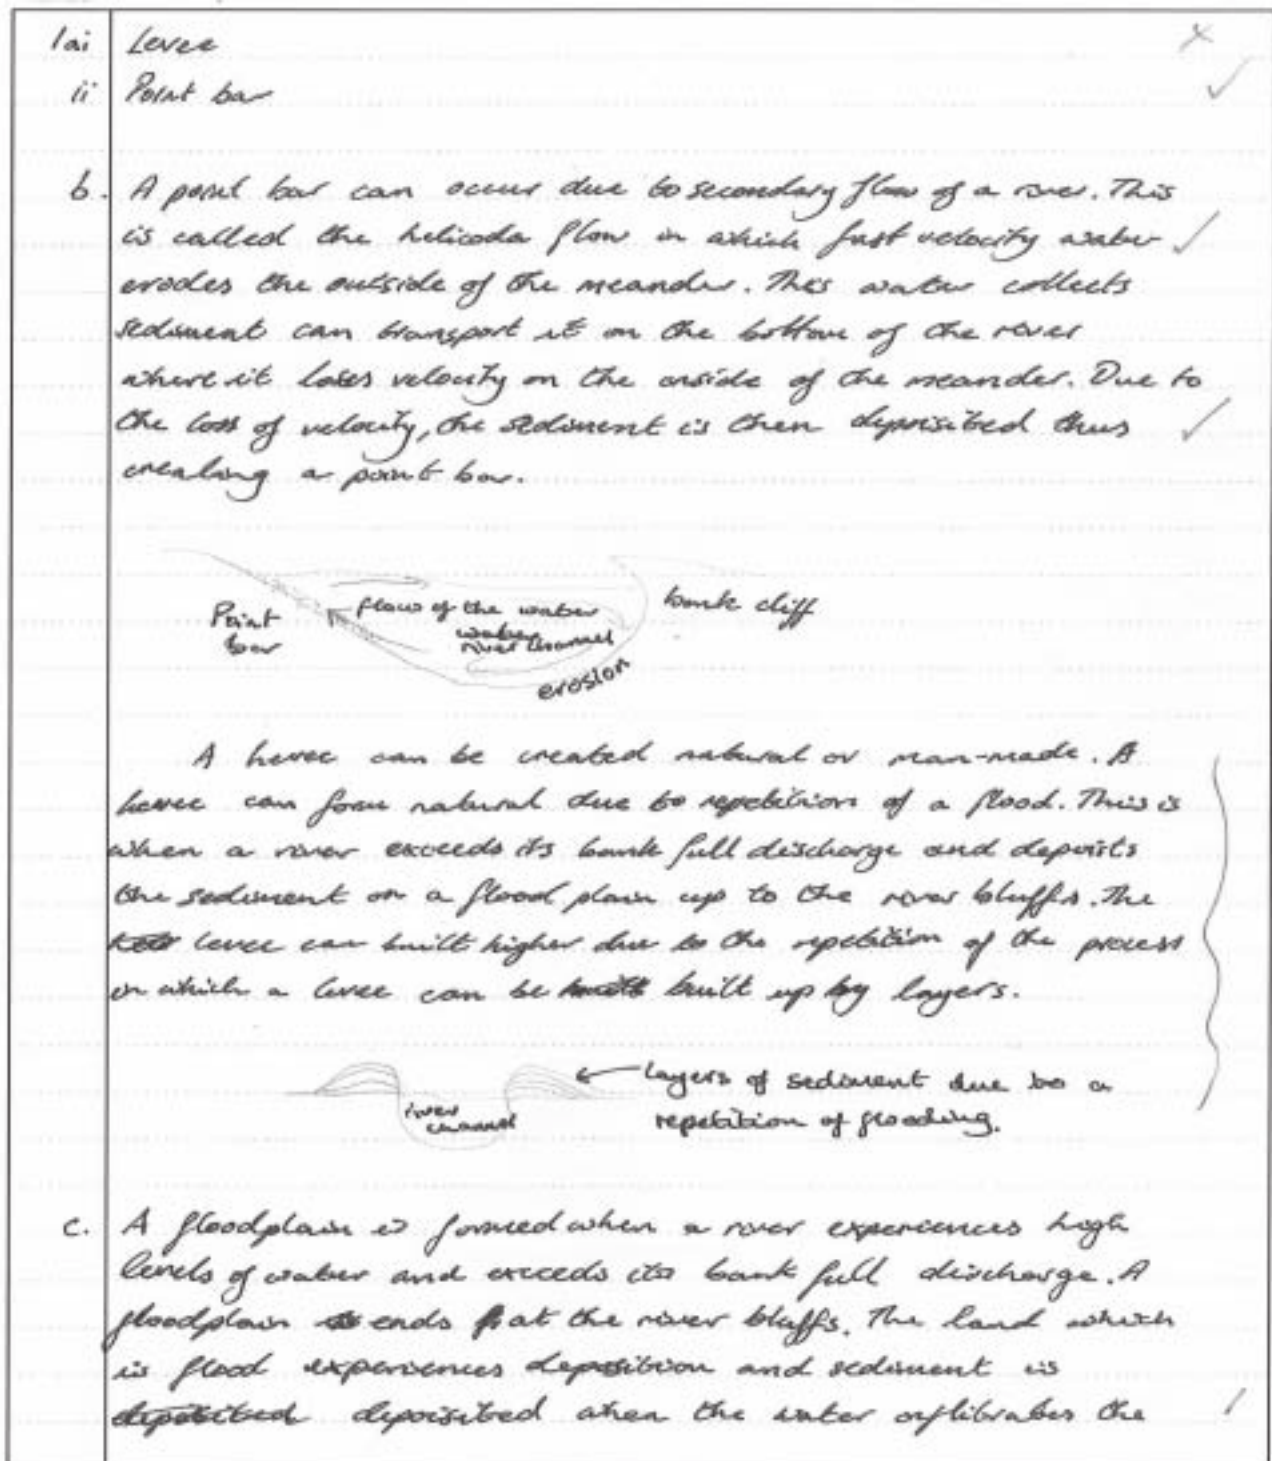 1ai Levee
ii Point bar
b. A point bar can occur due to secondary flow of a river. This
is called the helicoda flow in which fast velocity water
erodes the outside of the meander. This water collects
sediment can transport it on the bottom of the river
where it loses velocity on the inside of the meander. Due to
the loss of velocity, the sediment is then deposited thus
creating a point bar.
Point bar
flow of the water
water
river channel
erosion
bank cliff
A levee can be created natural or man-made. A
levee can form natural due to repetition of a flood. This is
when a river exceeds its bank full discharge and deposits
the sediment on a flood plain up to the river bluffs. The
levee can built higher due to the repetition of the process
in which a levee can be built up by layers.
river channel
layers of sediment due to a
repetition of flooding.
c. A floodplain is formed when a river experiences high
levels of water and exceeds its bank full discharge. A
floodplain ends at the river bluffs. The land which
is flood experiences deposition and sediment is
deposited depoisited when the water the